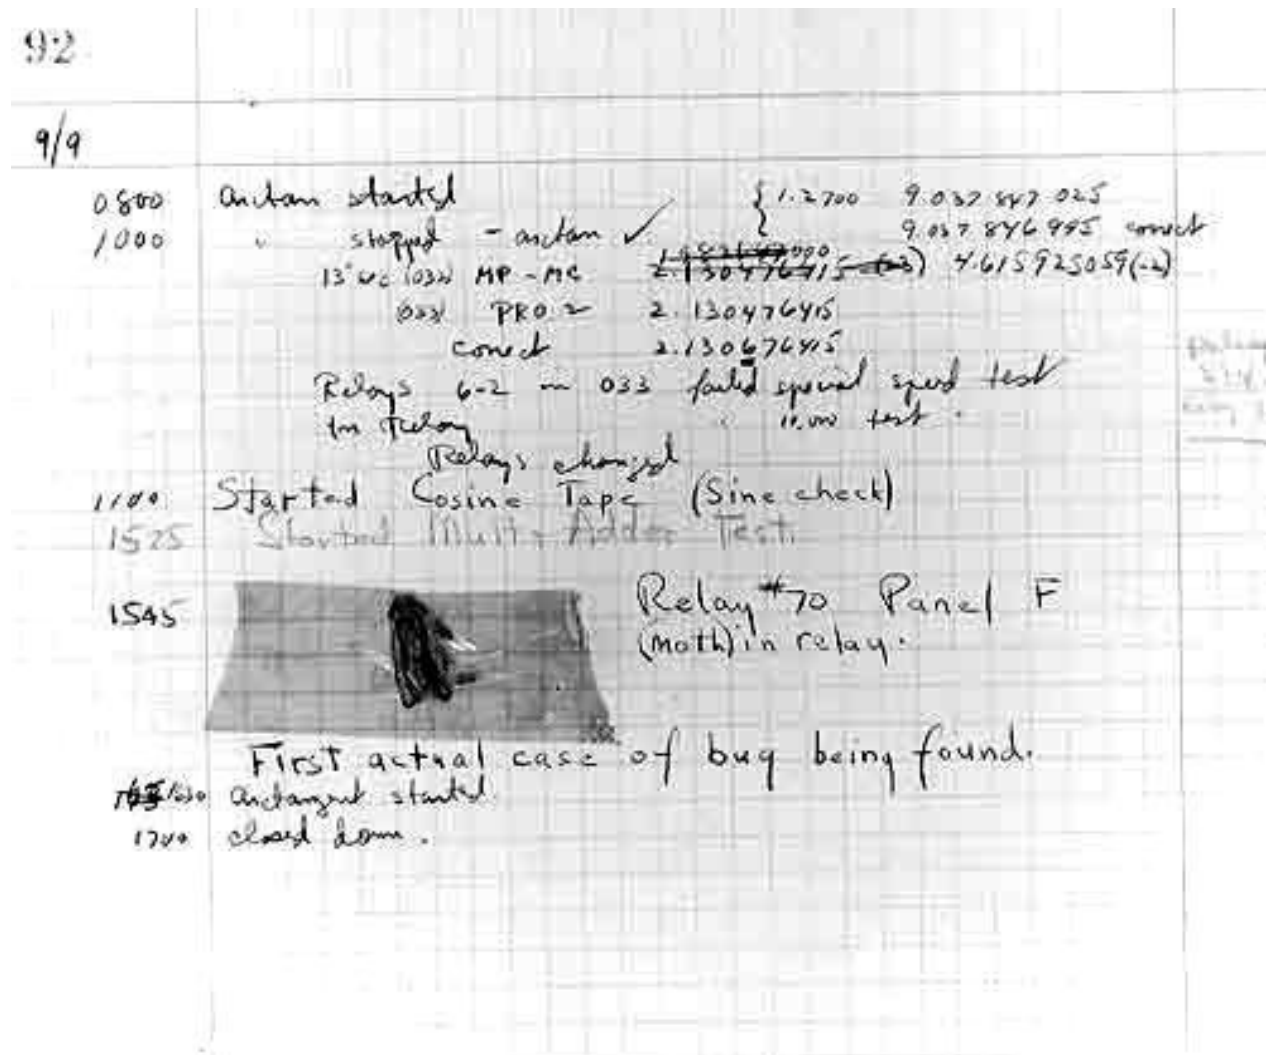 92
9/9
0800 arctan started { 1.2700 9.037 847 025
1000 " stopped - arctan ✓ { 9.037 846 995 correct
13" (032) MP - MC 2.130476415 4.615925059(-2)
(033) PRO 2 2.130476415
correct 2.130676415
Relays 6-2 in 033 failed special speed test
in relay " 11.000 test.
Relays changed
1100 Started Cosine Tape (Sine check)
1525 Started Mult + Adder Test.
1545 Relay #70 Panel F
(moth) in relay.
First actual case of bug being found.
1630 arctangent started.
1700 closed down.